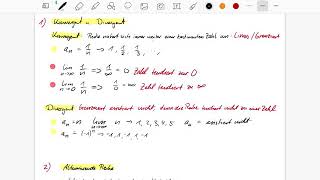 1) Konvergent u. Divergent
Konvergent: Reihe nähert sich immer weiter einer bestimmten Zahl an: Limes / Grenzwert
a_n = 1/n → 1, 1/2, 1/3, ...
lim n→∞ 1/n => 1/∞ = 0 Zahl tendiert zur 0
lim n→0 1/n => 1/0 = ∞ Zahl tendiert zu ∞
Divergent: Grenzwert existiert nicht, denn die Reihe tendiert nicht zu einer Zahl
a_n = n lim n→∞ n → 1, 2, 3, 4, 5 a_n = existiert nicht
a_n = (-1)^n → -1, 1, -1, 1, -1
2) Alternierende Reihe